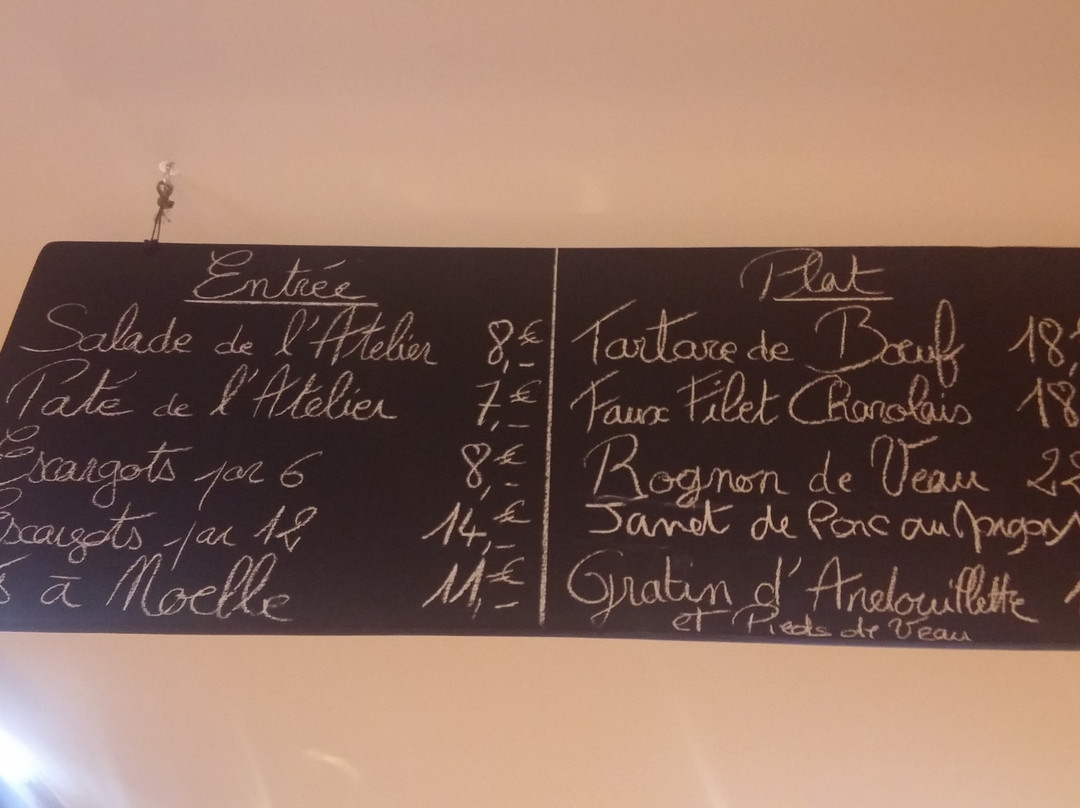 Entrée
Salade de l'Atelier 8,-€
Paté de l'Atelier 7,-€
Escargots par 6 8,-€
Escargots par 12 14,-€
à Moelle 11,-€
Plat
Tartare de Bœuf 18,
Faux Filet Charolais 18
Rognon de Veau 22
Jarret de Porc au
Gratin d'Andouillette 1
et Pieds de Veau